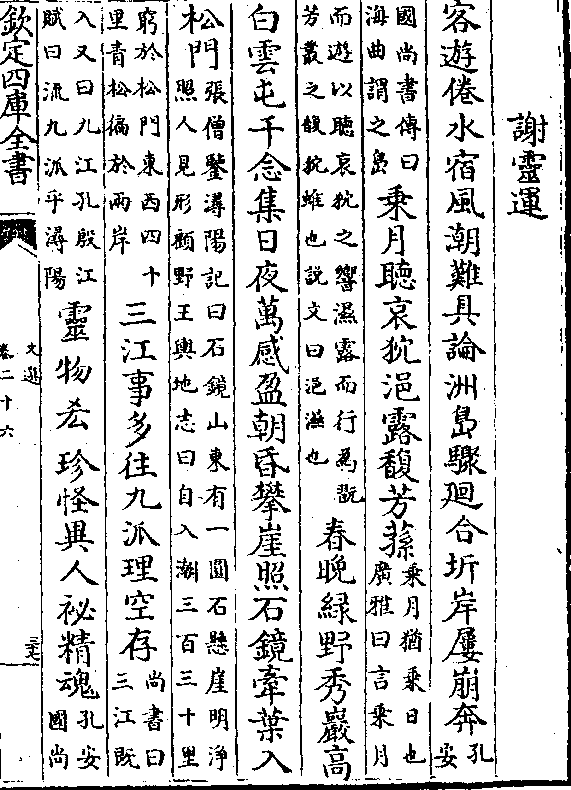 謝靈運
客遊倦水宿風潮難具論洲島驟廻合圻岸屢崩奔孔安
國尚書傳曰海曲謂之島乘月聽哀狖浥露馥芳蓀乘月猶乘日也廣雅曰言乘月
而遊以聽哀狖之響濕露而行為翫芳叢之馥狖蜼也説文曰浥溼也春晚緑野秀巖高
白雲屯千念集日夜萬感盈朝昏攀崖照石鏡牽葉入
松門張僧鑒潯陽記曰石鏡山東有一圓石懸崖明淨照人見形顧野王輿地志曰自入湖三百三十里
窮於松門東西四十里青松徧於兩岸三江事多往九派理空存尚書曰三江既
入又曰九江孔殷江賦曰流九派乎潯陽靈物𠫤珍怪異人祕精魂孔安國尚
欽定四庫全書
文選
卷二十六